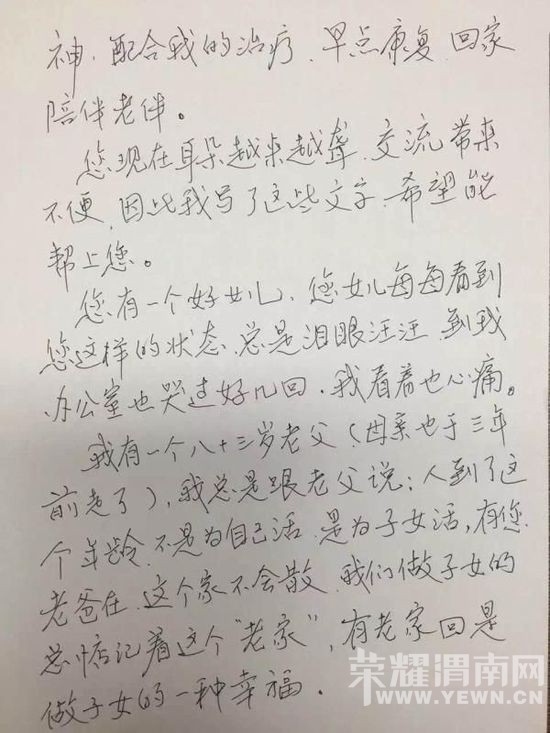 神．配合我的治疗．早点康复．回家
陪伴老伴。
您现在耳朵越来越聋．交流带来
不便．因此我写了这些文字．希望能
帮上您。
您有一个好女儿．您女儿每每看到
您这样的状态．总是泪眼汪汪．到我
办公室也哭过好几回．我看着也心痛。
我有一个八十三岁老父（母亲也于三年
前走了），我总是跟老父说：人到了这
个年龄．不是为自己活．是为子女活，有您
老爸在．这个家不会散．我们做子女的
总惦记着这个“老家”，有老家回是
做子女的一种幸福．
荣耀渭南网
WWW.YEWN.CN